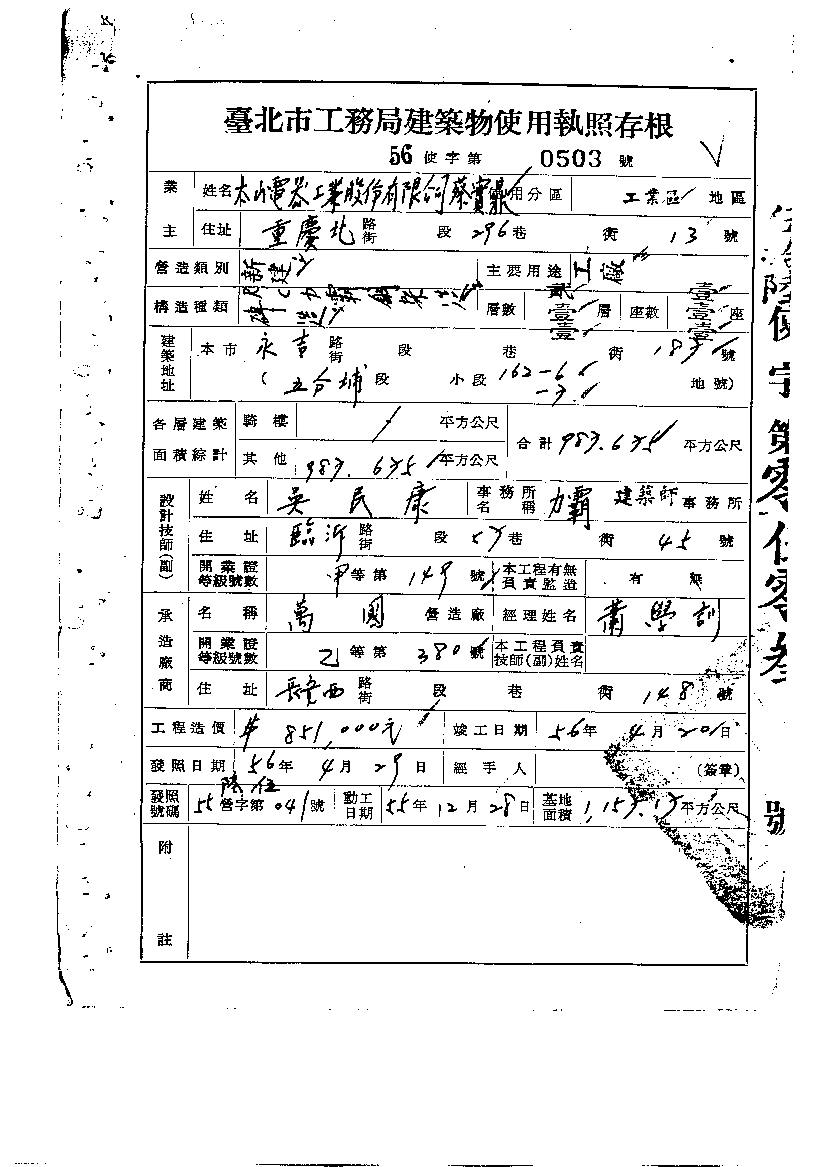 臺北市工務局建築物使用執照存根
56 使字第 0503 號
業主 姓名 太山電器工業股份有限公司 使用分區 工業區 地區
住址 重慶北 路街 段 296 巷 衖 13 號
營造類別 新建 主要用途 工廠
構造種類 層數 層 座數 座
建築地址 本市 永吉 路街 段 巷 衖 187 號
(五分埔 段 小段 162-6 地號)
各層建築面積綜計 騎樓 平方公尺 合計 987.635 平方公尺
其他 987.635 平方公尺
設計技師(副) 姓名 吳民康 事務所名稱 力霸 建築師 事務所
住址 臨沂 路街 段 57 巷 衖 45 號
開業證等級號數 甲 等第 149 號 本工程有無負責監造 有 無
承造廠商 名稱 萬國 營造廠 經理姓名 蕭學
開業證等級號數 乙 等第 380 號 本工程負責技師(副)姓名
住址 長安西 路街 段 巷 衖 148 號
工程造價 851,000元 竣工日期 56年 4月 20日
發照日期 56年 4月 29日 經手人 (簽章)
發照號碼 55 營字第 041 號 動工日期 55年 12月 28日 基地面積 平方公尺
附註
陸使字第零伍零叁號